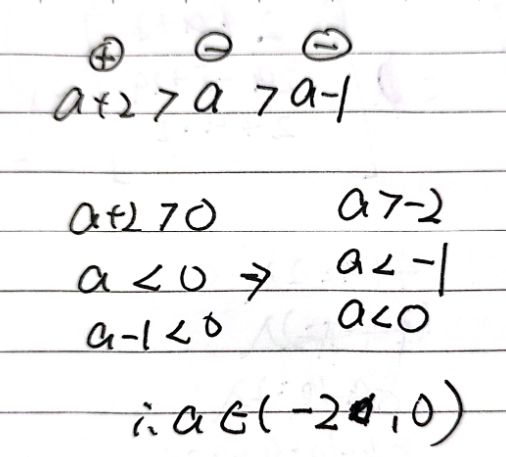 ⊕ ⊖ ⊖
a+2 > a > a-1
a+2>0 a>-2
a<0 ⇒ a<-1
a-1<0 a<0
∴ a∈(-2,0)